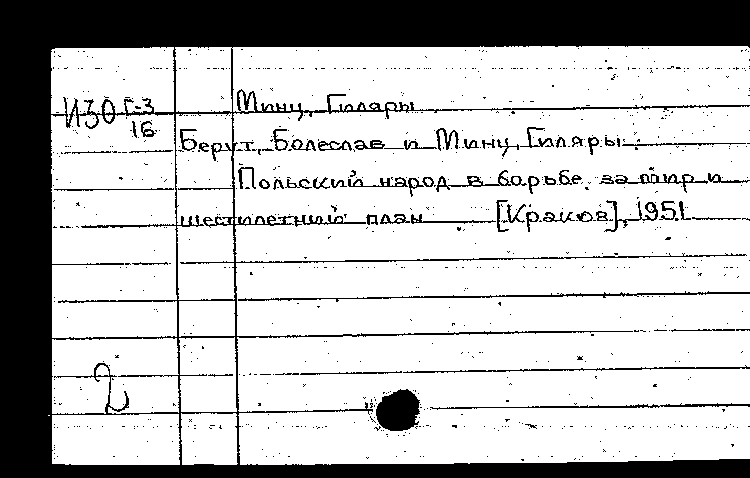 ИЗО Г-3
16
Минц, Гиляры
Берут, Болеслав и Минц, Гиляры.
Польский народ в борьбе за мир и
шестилетний план [Краков], 1951
2